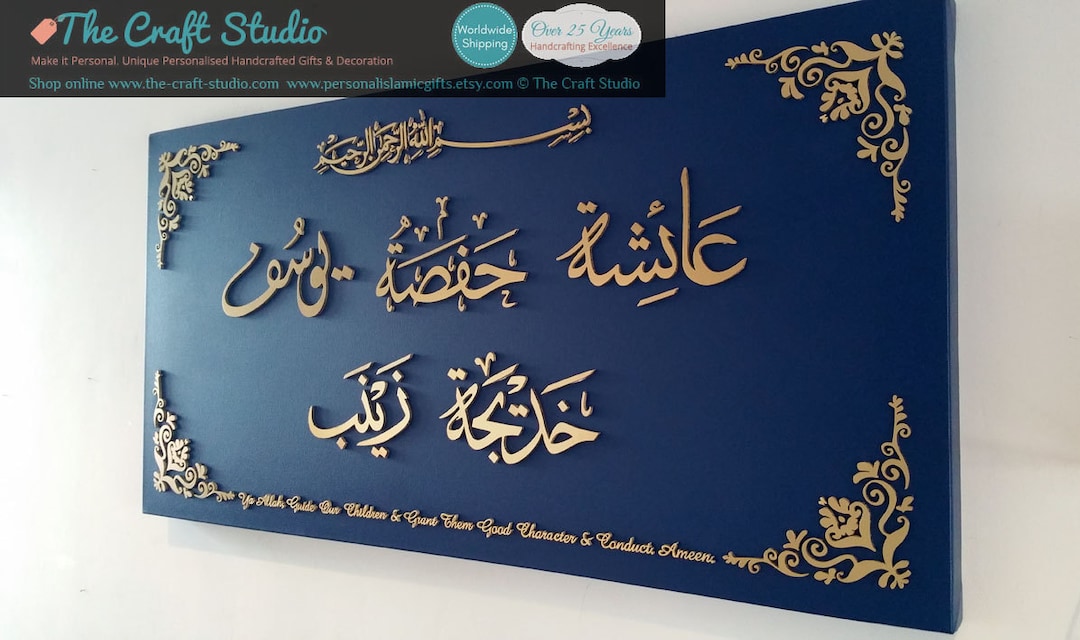 The Craft Studio
Make it Personal. Unique Personalised Handcrafted Gifts & Decoration
Shop online www.the-craft-studio.com www.personalislamicgifts.etsy.com © The Craft Studio
Worldwide
Shipping
Over 25 Years
Handcrafting Excellence
بسم الله الرحمن الرحيم
عائشة حفصة يوسف
خديجة زينب
Ya Allah, Guide Our Children & Grant Them Good Character & Conduct. Ameen.